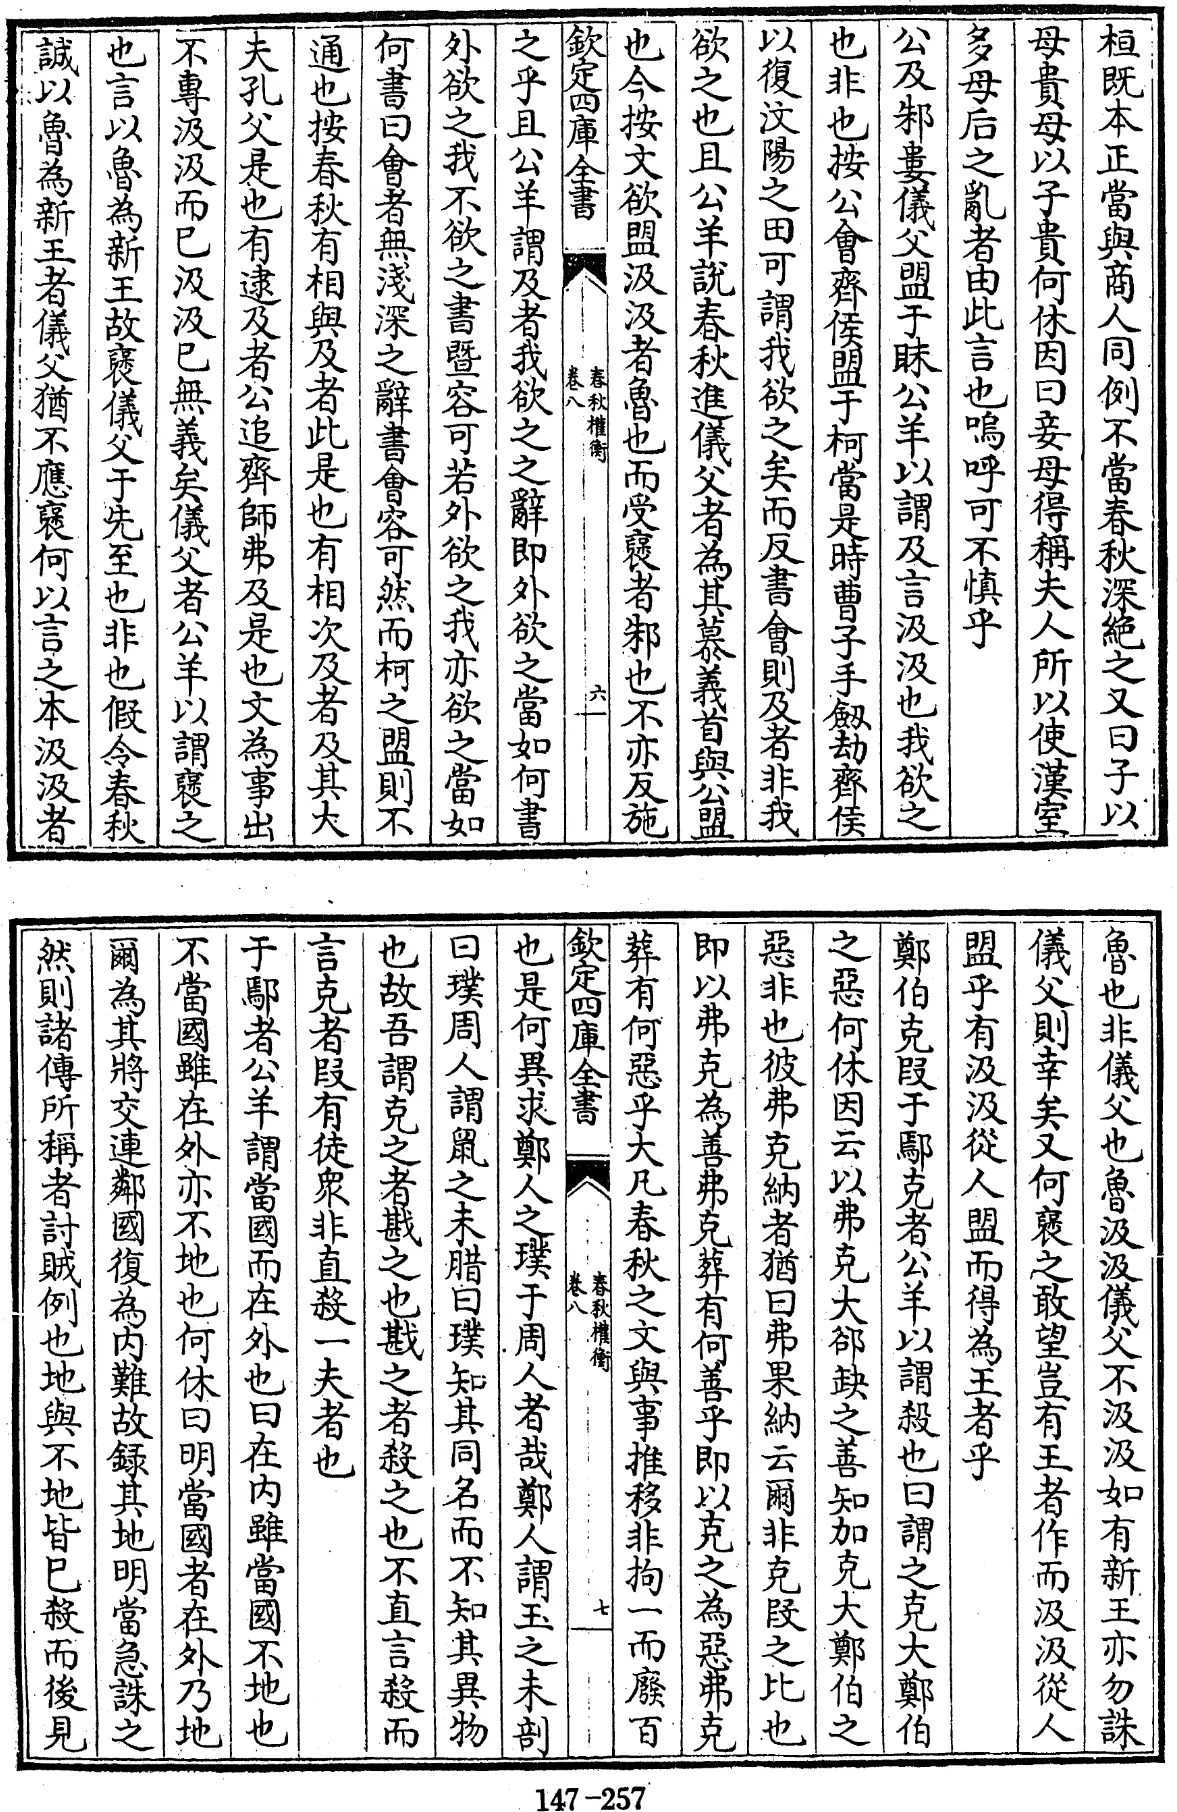 桓既本正當與商人同例不當春秋深絶之又曰子以
母貴母以子貴何休因曰妾母得稱夫人所以使漢室
多母后之亂者由此言也嗚呼可不慎乎
公及邾婁儀父盟于眜公羊以謂及言汲汲也我欲之
也非也按公會齊侯盟于柯當是時曹子手劔劫齊侯
以復汶陽之田可謂我欲之矣而反書會則及者非我
欲之也且公羊說春秋進儀父者為其慕義首與公盟
也今按文欲盟汲汲者魯也而受襃者邾也不亦反施
欽定四庫全書
春秋權衡
卷八
六
之乎且公羊謂及者我欲之之辭即外欲之當如何書
外欲之我不欲之書暨容可若外欲之我亦欲之當如
何書曰會者無淺深之辭書會容可然而柯之盟則不
通也按春秋有相與及者此是也有相次及者及其大
夫孔父是也有逮及者公追齊師弗及是也文為事出
不專汲汲而已汲汲已無義矣儀父者公羊以謂襃之
也言以魯為新王故襃儀父于先至也非也假令春秋
誠以魯為新王者儀父猶不應襃何以言之本汲汲者
魯也非儀父也魯汲汲儀父不汲汲如有新王亦勿誅
儀父則幸矣又何襃之敢望豈有王者作而汲汲從人
盟乎有汲汲從人盟而得為王者乎
鄭伯克段于鄢克者公羊以謂殺也曰謂之克大鄭伯
之惡何休因云以弗克大郤缺之善知加克大鄭伯之
惡非也彼弗克納者猶曰弗果納云爾非克段之比也
即以弗克為善弗克葬有何善乎即以克之為惡弗克
葬有何惡乎大凡春秋之文與事推移非拘一而廢百
欽定四庫全書
春秋權衡
卷八
七
也是何異求鄭人之璞于周人者哉鄭人謂玉之未剖
曰璞周人謂鼠之未腊曰璞知其同名而不知其異物
也故吾謂克之者戡之也戡之者殺之也不直言殺而
言克者段有徒衆非直殺一夫者也
于鄢者公羊謂當國而在外也曰在内雖當國不地也
不當國雖在外亦不地也何休曰明當國者在外乃地
爾為其將交連鄰國復為内難故録其地明當急誅之
然則諸傳所稱者討賊例也地與不地皆已殺而後見
147-257